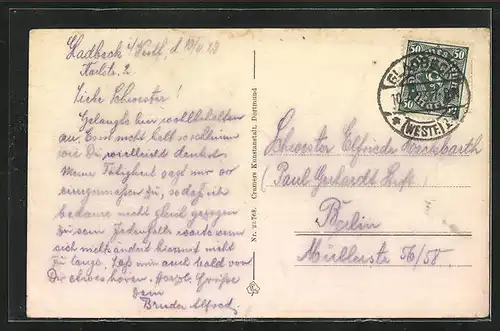 Gladbeck i/ Westf, d 19/4. 23
Karlstr. 2
Liebe Schwester!
Gelangte hier wohlbehalten
an. Es ist nicht halb so schlimm
wie Du vielleicht denkst.
Meine Tätigkeit sagt mir so
einigermaßen zu, sodaß ich
bedaure nicht gleich gezogen
zu sein. Jedenfalls warte wenn
sich mich ändert kommst nicht
zu lange. Laß mir auch bald von
Dir etwas hören. Herzl. Grüße
Dein
Bruder Alfred
Nr. 22768 Cramers Kunstanstalt, Dortmund
50 50
GLADBECK
* (WESTF) 2
Schwester Elfriede
Paul Gerhardt Stift
Berlin
Müllerstr 56/58.